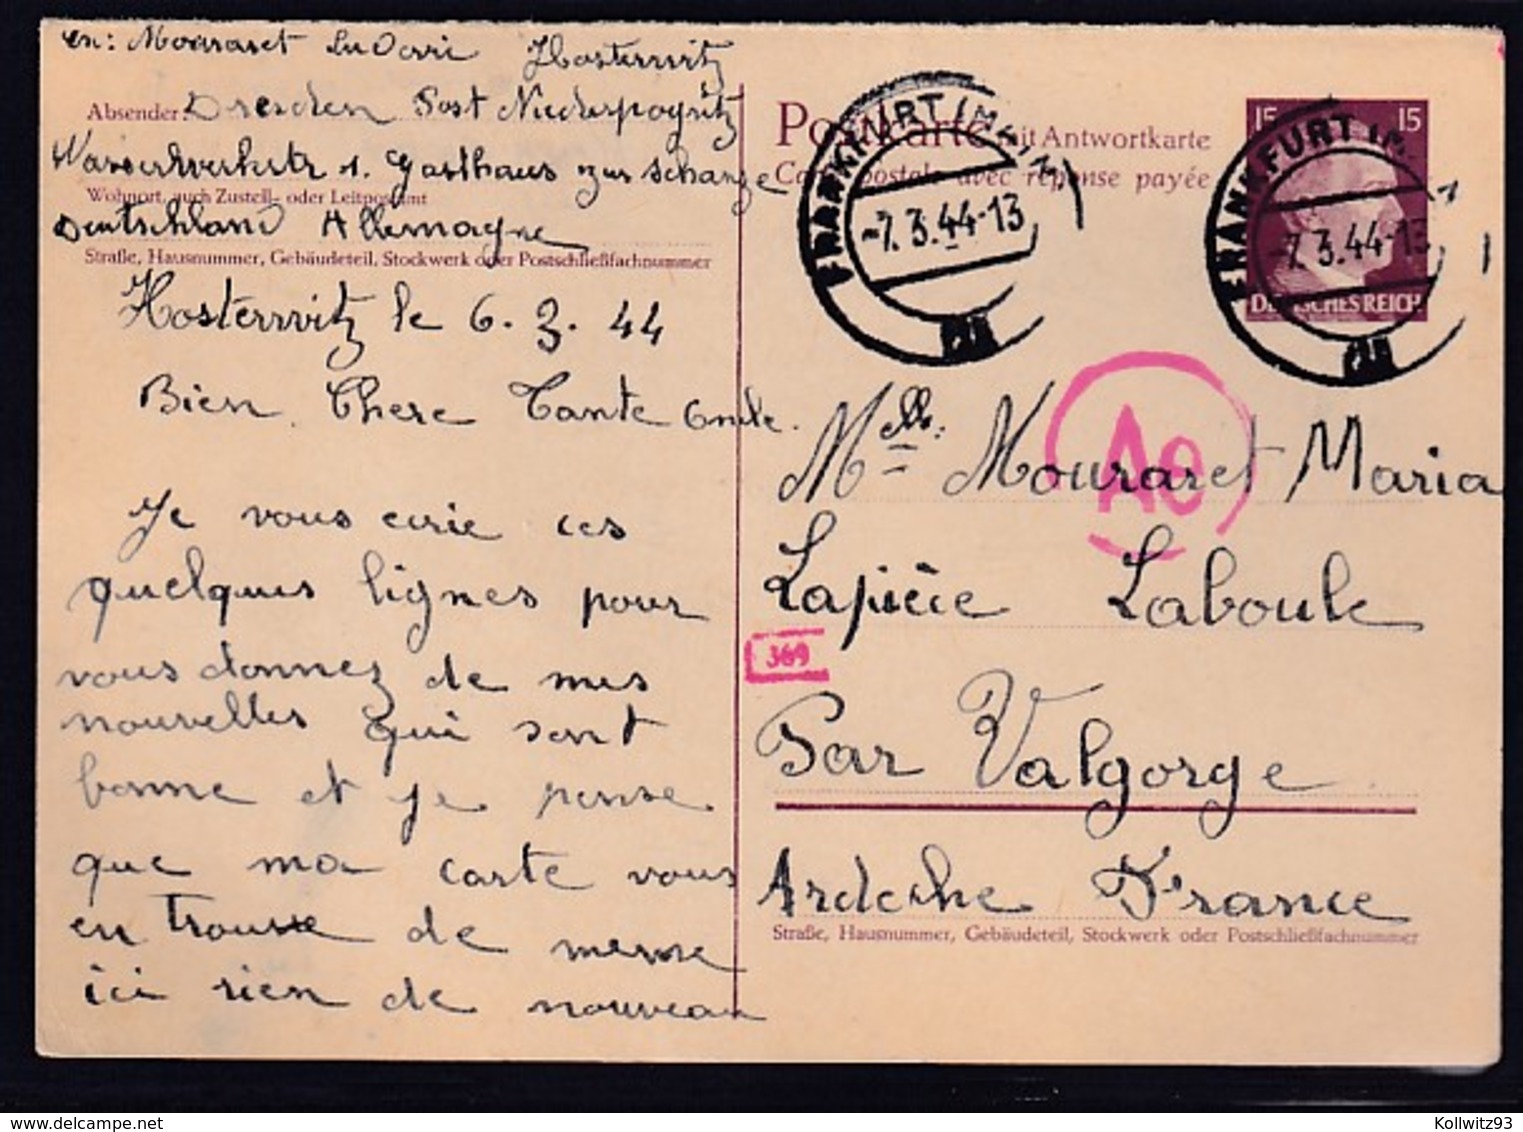 en: Mouraret Ludovic Hosterwitz
Absender: Dresden Post Niederpoyritz
Wasserwerkstr 1. Gasthaus zur schanze
Wohnort, auch Zustell- oder Leitpostamt
Deutschland Allemagne
Straße, Hausnummer, Gebäudeteil, Stockwerk oder Postschließfachnummer
Hosterwitz le 6. 3. 44
Bien Chere Tante
Je vous ecrie ces
quelques lignes pour
vous donnez de mes
nouvelles qui sont
bonne et je pense
que ma carte vous
en trouve de meme
ici rien de nouveau
Postkarte mit Antwortkarte
Carte postale avec réponse payée
FRANKFURT (MAIN) 1
-7.3.44-13
15 15
DEUTSCHES REICH
FRANKFURT (MAIN) 1
-7.3.44-13
Ae
Melle: Mouraret Maria
Lapièce Laboule
369
Par Valgorge
Ardeche France
Straße, Hausnummer, Gebäudeteil, Stockwerk oder Postschließfachnummer
Kollwitz93